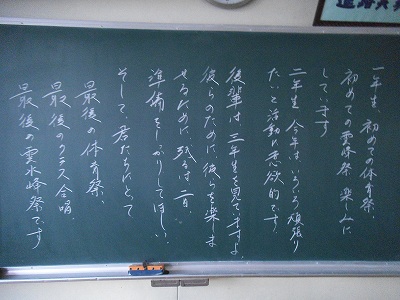 一年生 初めての体育祭、
初めての雲峰祭 楽しみに
しています
二年生 今年はいろいろ頑張り
たいと活動に意欲的です。
後輩は三年生を見ていますよ。
彼らのために、彼らを楽しま
せるために、残りは二日、
準備をしっかりしてほしい。
そして、君たちにとって
最後の体育祭、
最後のクラス合唱、
最後の雲水峰祭です